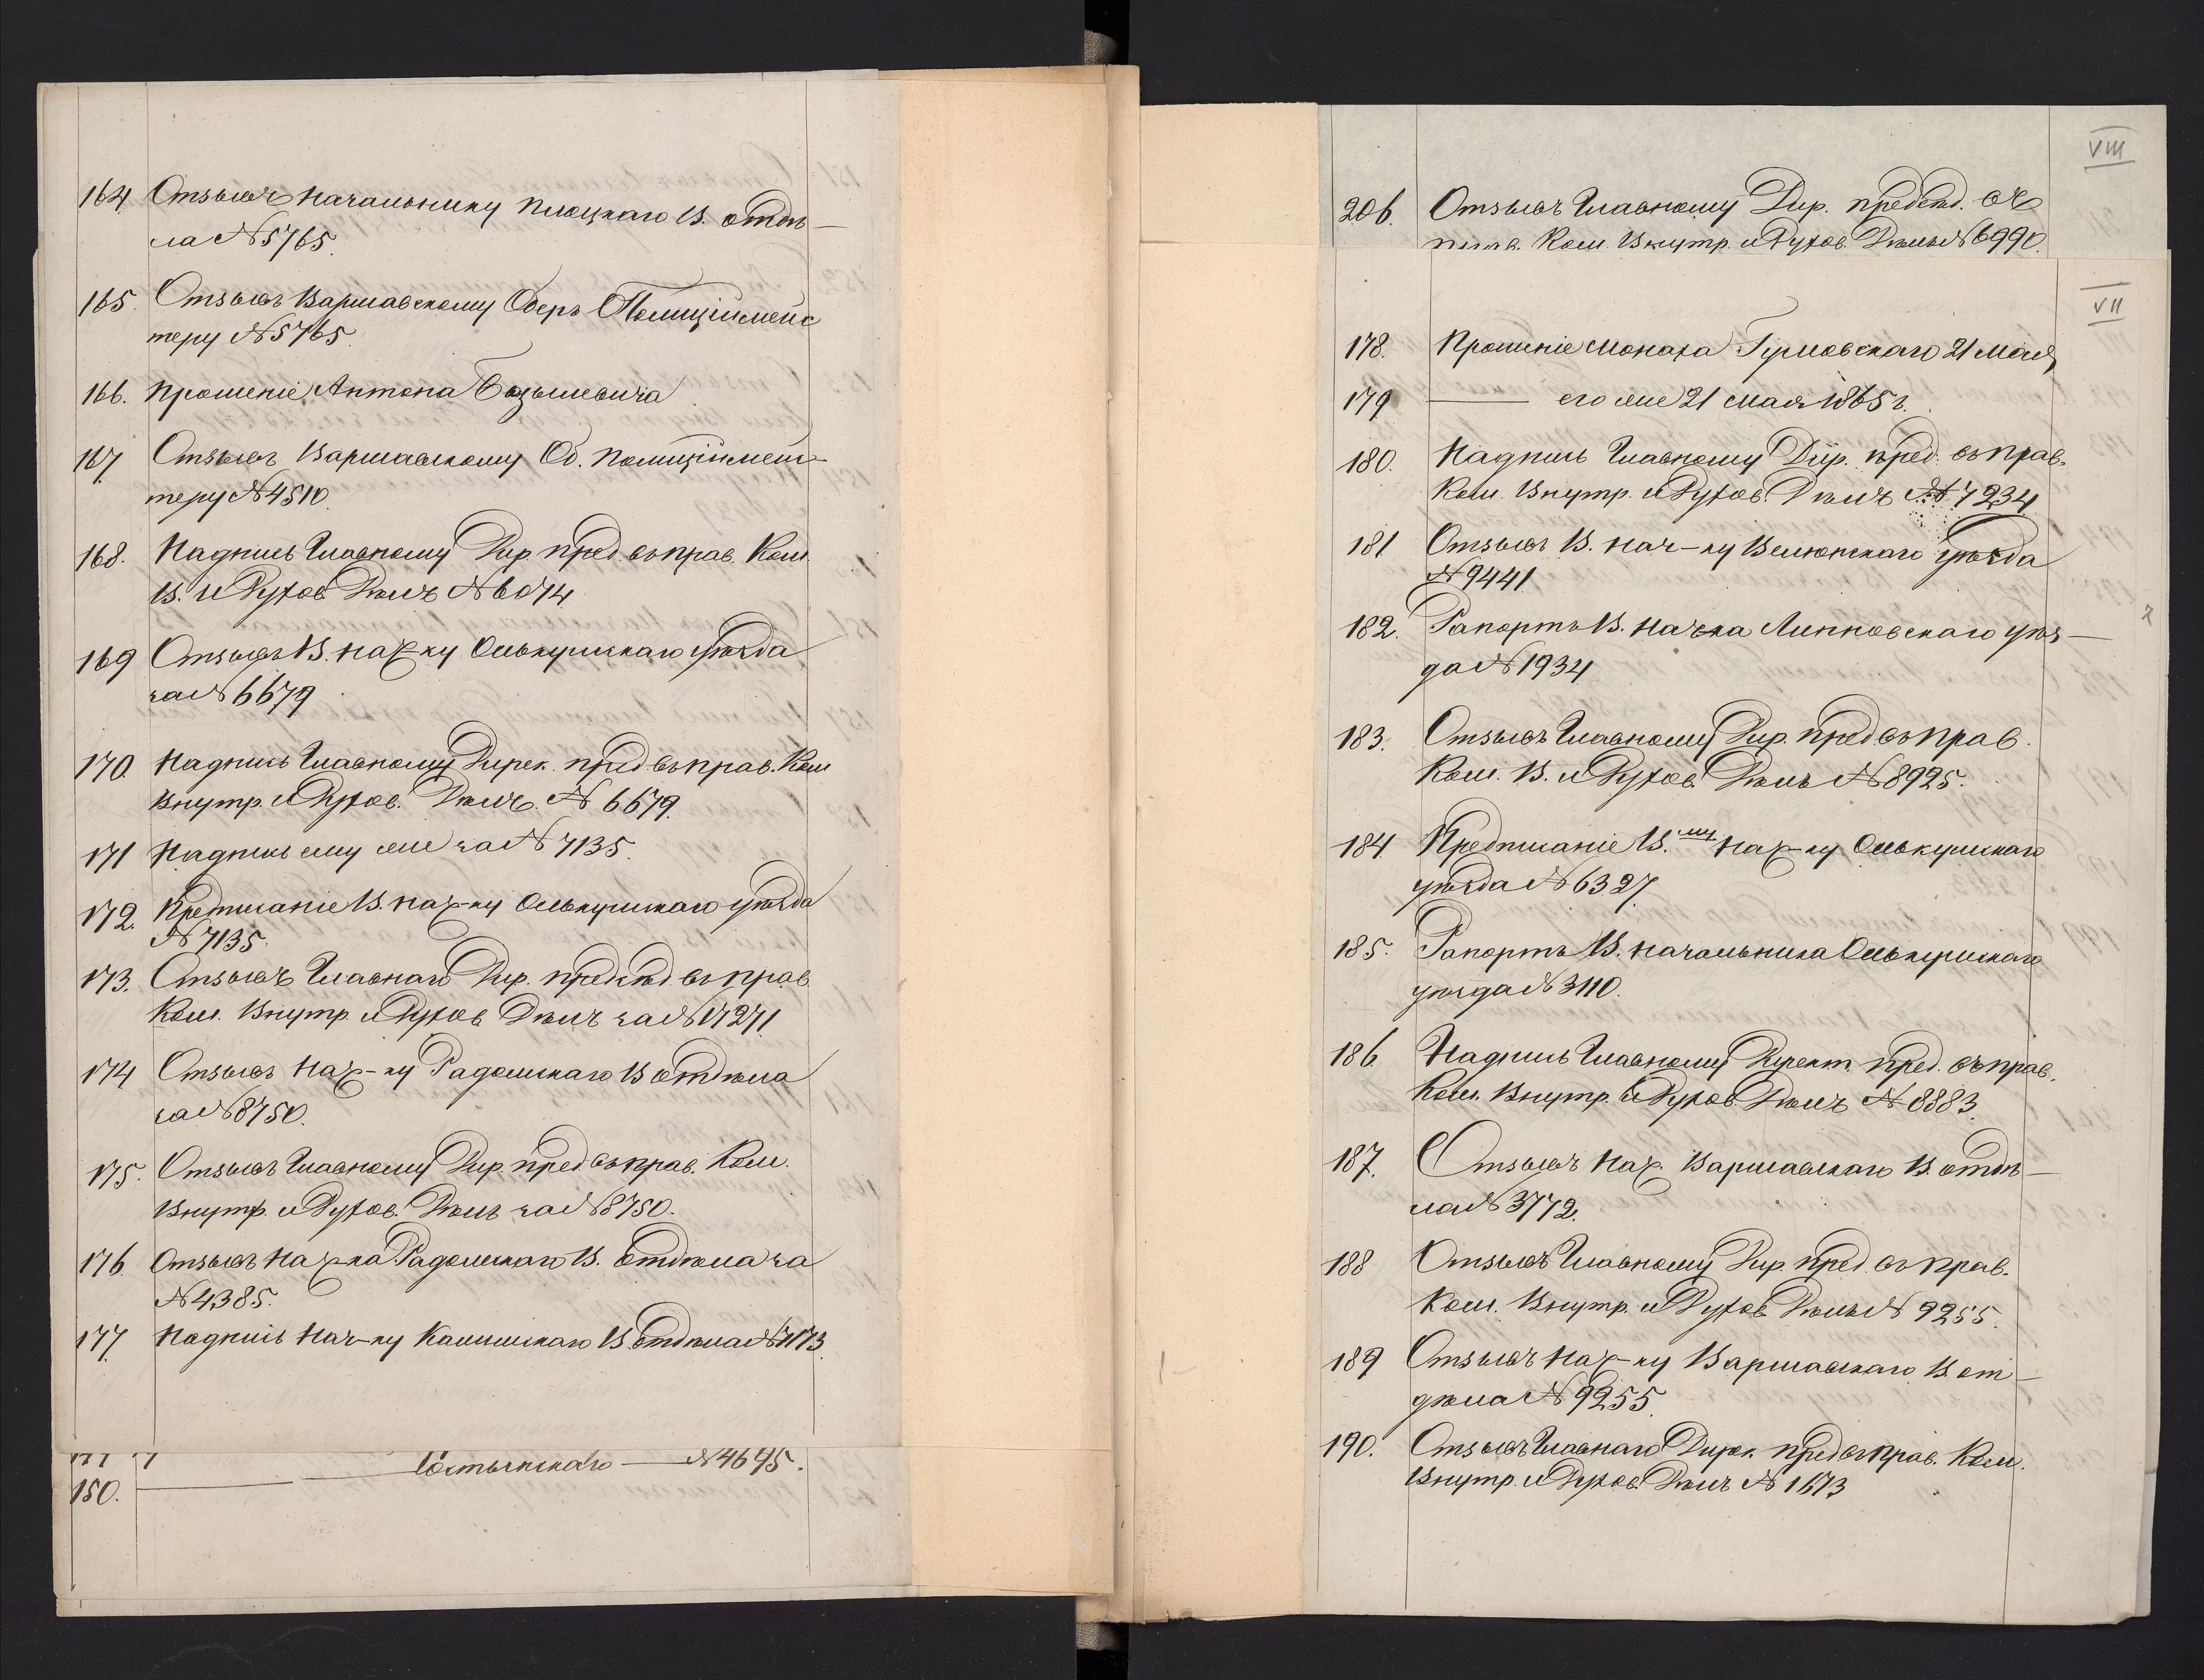 164 Отзывъ Начальнику Плоцкаго В. отдѣ-
ла № 5765.
165. Отзывъ Варшавскому Оберъ Полицiймейс
теру № 5765.
166. Прошенiе Антона
167. Отзывъ Варшавскому Об. Полицiймейс-
теру № 4510.
168. Надпись Главному Дир. пред. въ прав. Ком.
В. и Духов. Дѣлъ № 6074
169 Отзывъ В. нач-ку Олькушскаго уѣзда
за № 6679
170. Надпись Главному Дирек. пред въ прав. Ком
Внутр. и Духов. Дѣлъ. № 6679.
171 Надпись ему же за № 7135.
172. Предписанiе В. нач-ку Олькушскаго уѣзда
№ 7135.
173. Отзывъ Главнаго Дир. предсѣд. въ прав
Ком. Внутр. и Духов Дѣлъ за № 17271
174 Отзывъ Нач-ку Радомскаго В отдѣла
за № 8750.
175. Отзывъ Главному Дир. пред въ прав. Ком.
Внутр. и Духов. Дѣлъ за № 8750.
176 Отзывъ Нач-ка Радомскаго В. Отдѣла за
№ 4385.
177. Надпись Нач-ку Калишскаго В. Отдѣла № 7173.
Гостынскаго — № 4695.
150.
VIII
206. Отзывъ Главному Дир. предсѣд. въ
прав. Ком. Внутр. и Духов. Дѣлъ № 6990.
VII
178. Прошенiе монаха Гурловскаго 21 Мая
179 — его же 21 Мая 1865 г.
180. Надпись Главному Дир. пред. въ прав.
Ком. Внутр. и Духов. Дѣлъ № 7234
181 Отзывъ В. нач-ку Велюнскаго уѣзда
№ 9441
182. Рапортъ В. нач-ка Липновскаго уѣз-
да № 1934
183. Отзывъ Главному Дир. пред въ прав.
Ком. В. и Духов. Дѣлъ № 8925.
184 Предписанiе В.му нач-ку Олькушскаго
уѣзда № 6327
185. Рапортъ В. начальника Олькушскаго
уѣзда № 3110.
186 Надпись Главному Директ. пред. въ прав.
Ком. Внутр. и Духов. Дѣлъ № 8883.
187. Отзывъ Нач. Варшавскаго В. отдѣ-
ла № 3772.
188 Отзывъ Главному Дир. пред. въ прав.
Ком. Внутр. и Духов Дѣлъ № 9255.
189 Отзывъ Нач-ку Варшавскаго В. от-
дѣла № 9255.
190. Отзывъ Главнаго Дирек. пред въ прав. Ком.
Внутр. и Духов. Дѣлъ № 1673